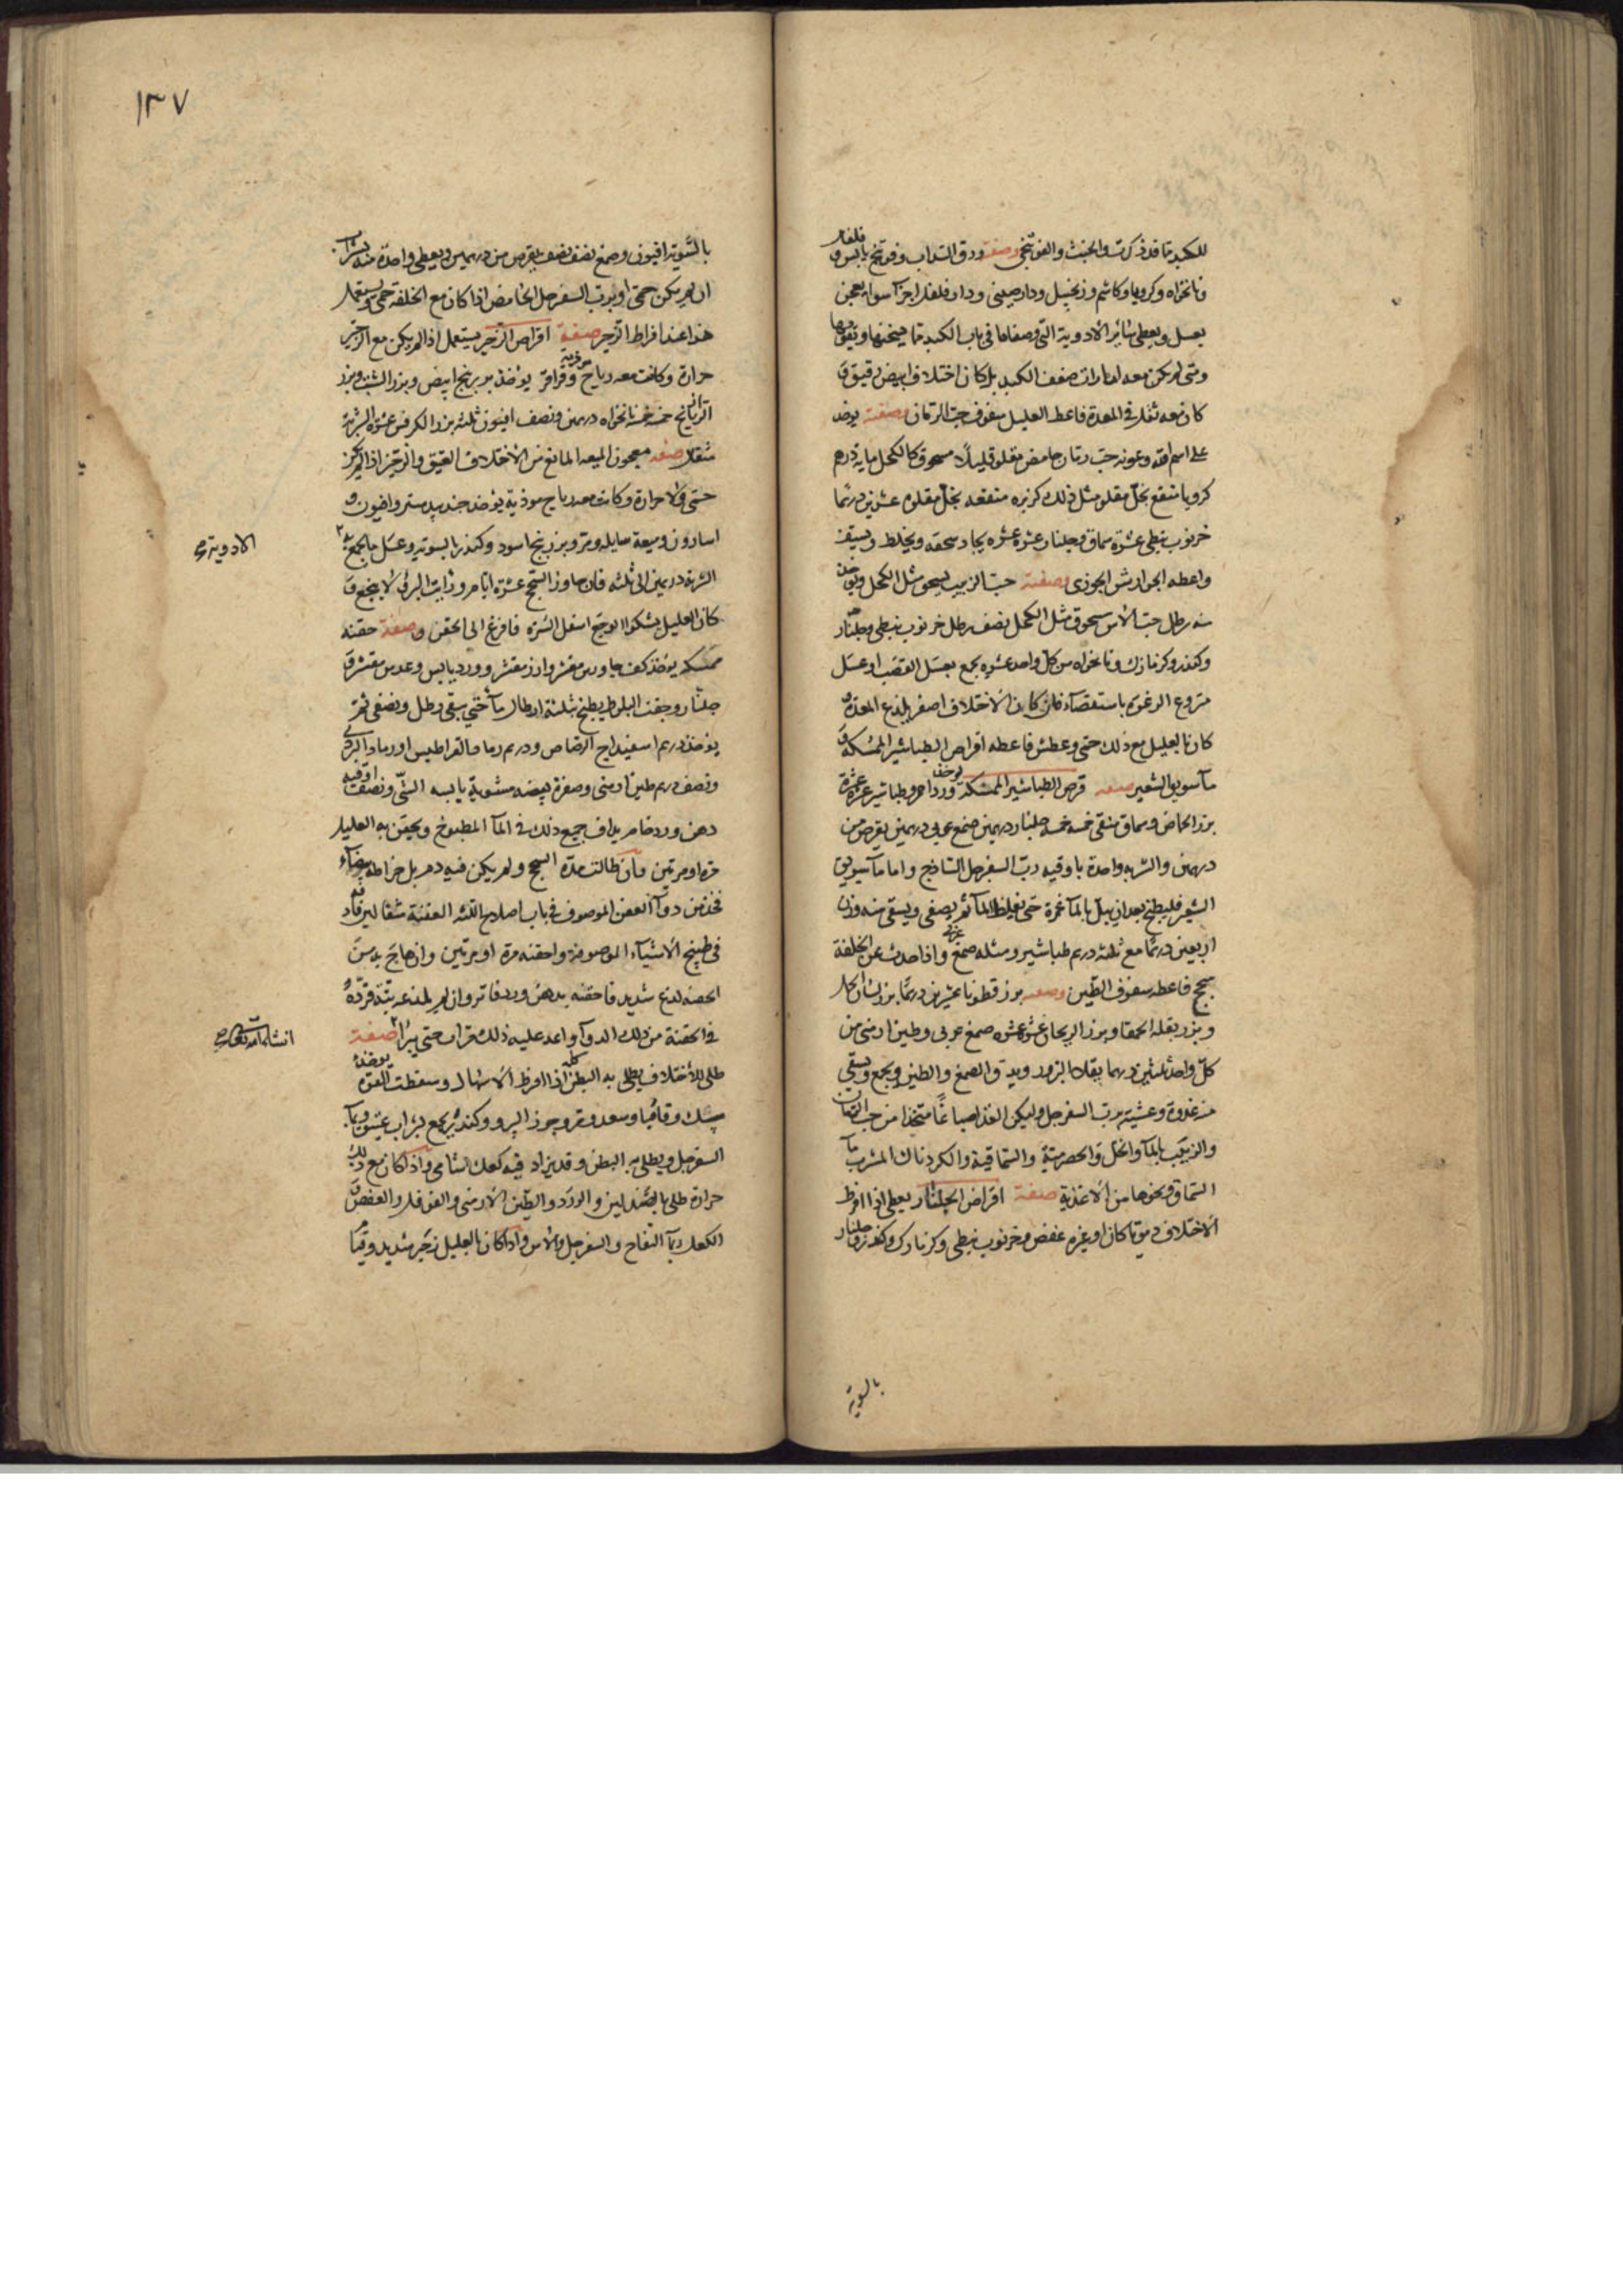 للكبد مما قد ذكرت والخبث والفوتنجى وصفته ورق السداب وفوتنج يابس وفلفل
ونانخواه وكرويا وكاشم وزنجبيل ودارصينى ودار فلفل اجزآ سوا يعجن
بعسل ويعطى سائر الادوية التى وصفناها فى باب الكبد مما يسخنها ويقويها
ومتى لم يكن معه امارات ضعف الكبد بل كان اختلاف ابيض رقيق و
كان معه ثقل فى المعدة فاعط العليل سفوف حب الرمان وصفته يوخذ
على اسم الله وعونه حب رمان حامض مقلو قليلًا مسحوق كالكحل مايه درهم
كرويا منقع بخل مقلو مثل ذلك كزبره منقعه بخل مقلوه عشرين درهما
خرنوب نبطى عشرة سماق وجلنار عشرة عشره يجاد سحقه ويخلط ويستف
واعطه الجوارش الجوزى وصفته حب الزبيب يسحق مثل الكحل ويوخذ
منه رطل حب الآس مسحوق مثل الكحل نصف رطل خرنوب نبطى وجلنار
وكندر وكزمازك ونانخواه من كل واحد عشره يجمع بعسل القصب او عسل
منزوع الرغوة باستقصآء فان كان الاختلاف اصفر يلذع المعدة و
كان بالعليل مع ذلك حمى وعطش فاعطه اقراص الطباشير الممسكة و
مآ سويق الشعير صفه قرص الطباشير الممسكة يوخذ ورد احمر وطباشير عشرة عشرة
بزر الحماض وسماق منقى خمسه خمسه جلنار درهمين صمغ عربى درهمين يقرص من
درهمين والشربه واحدة باوقيه رب السفرجل الساذج واما مآ سويق
الشعير فليطبخ بعد ان يبل بالمآ غمرة حتى يغلظ المآ ثم يصفى ويسقى منه وزن
اربعين درهمًا مع ثلثه درهم طباشير ومثله صمغ عربى واذا حدث عن الخلفة
سحج فاعطه سفوف الطين وصفه بزر قطونا عشرين درهمًا بزر لسان الحمل
وبزر بقلة الحمقا وبزر الريحان عشرة عشره صمغ عربى وطين ارمنى من
كل واحد ثلثين درهما يقلا البزور ويدق الصمغ والطين ويجمع ويسقى
منه غدوة وعشية برب السفرجل وليكن الغذا صباغًا متخذا من حب الرمان
والزبيب بالمآ والخل والحصرمية والسماقية والكردناك المشرب مآ
السماق ونحوها من الاغذية صفة اقراص الجلنار يعطى اذا افرط
الاختلاف دمويًا كان او غيره عفص وخرنوب نبطى وكزمازك وكندر وجلنار
بالسوية
١٣٧
بالسَّوية افيون وصمغ نصف نصف يقرص من درهمين ويعطى واحدة منه بشراب
ان لم يكن حمى او برب السفرجل الحامض اذا كان مع الخلفة حمى ويستعمل
هذا عند افراط الزحير صفة اقراص الزحير يستعمل اذا لم يكن مع الزحير
حرارة وكانت معه رياح موذية وقراقر يوخذ بزر بنج ابيض وبزر الشبث وبزر
الرازيانج خمسه خمسه نانخواه درهمين ونصف افيون ثلثه بزر الكرفس عشره الشربة
مثقال صفه معجون الميعه المانع من الاختلاف العتيق والزحير اذا لم يكن
حمى ولا حرارة وكانت معه رياح موذية يوخذ جندبيدستر وافيون و
اسارون وميعة سايله ومر وبزر بنج اسود وكندر بالسويه وعسل ما يجمع به
الادوية صح
الشربة درهمين الى ثلثه فان جاوز السحج عشرة ايام ورايت البزور لا ينجع و
كان العليل يشكوا الوجع اسفل السرة فافزع الى الحقن وصفة حقنه
ممسكه يوخذ كف جاورس مقشر وارز مقشر وورد يابس وعدس مقشر و
جلنار وجفت البلوط يطبخ بثلثة ارطال مآ حتى يبقى رطل ويصفى ثم
يوخذ درهم اسفيداج الرصاص ودرهم رماد القراطيس او رماد البردى
ونصف درهم طين ارمنى وصفرة بيضه مشوية يابسه الشّى ونصف اوقيه
دهن ورد خام يداف جميع ذلك فى المآ المطبوخ ويحقن به العليل
مرة او مرتين فان طالت مدة السحج ولم يكن فيه دم بل خراطه بيضآء
فخذ من دوآ العفن الموصوف فى باب اصلاح اللثه العفنة مثقالين فاد
فى طبيخ الاشيآء الموصوفة واحقنه مرة او مرتين وان هاج به من
الحقنه لذع شديد فاحقنه بدهن ورد فاتر وان لم يلذعه بتة فزده
فى الحقنة من ذلك الدوآ واعد عليه ذلك مرات حتى يبرا صفة
انشاء الله تعالى صح
طلى للاختلاف يطلى به البطن كله اذا افرط الاسهال وسقطت القوة يوخذ
سك وقاقيا وسعد ومر وجوز السرو وكندر يجمع بشراب عتيق ومآ
السفرجل ويطلى به البطن وقد يزاد فيه كعك شامى واذا كان مع ذلك
حرارة طلى بالصندلين والورد والطين الارمنى والقوفل والعفص و
الكعك بمآ التفاح والسفرجل والآس واذا كان بالعليل زحير شديد وقيام